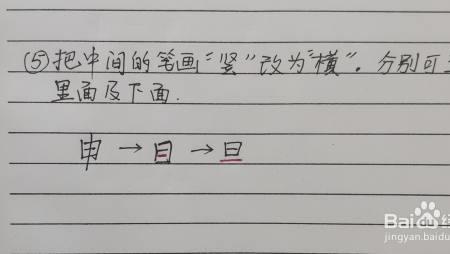 ⑤把中间的笔画“竖”改为“横”。分别可
里面及下面.
申→目→旦
Bai
jingyan.baidu